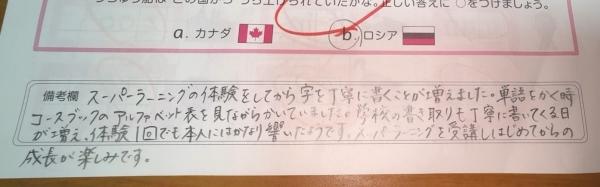 どの国からうち上げられていたかな。正しい答えに○をつけましょう。
a. カナダ b. ロシア
備考欄 スーパーラーニングの体験をしてから字を丁寧に書くことが増えました。単語をかく時
コースブックのアルファベット表を見ながらかいていました。学校の書き取りも丁寧に書いてくる日
が増え、体験1回でも本人にはかなり響いたようです。スーパーラーニングを受講しはじめてからの
成長が楽しみです。